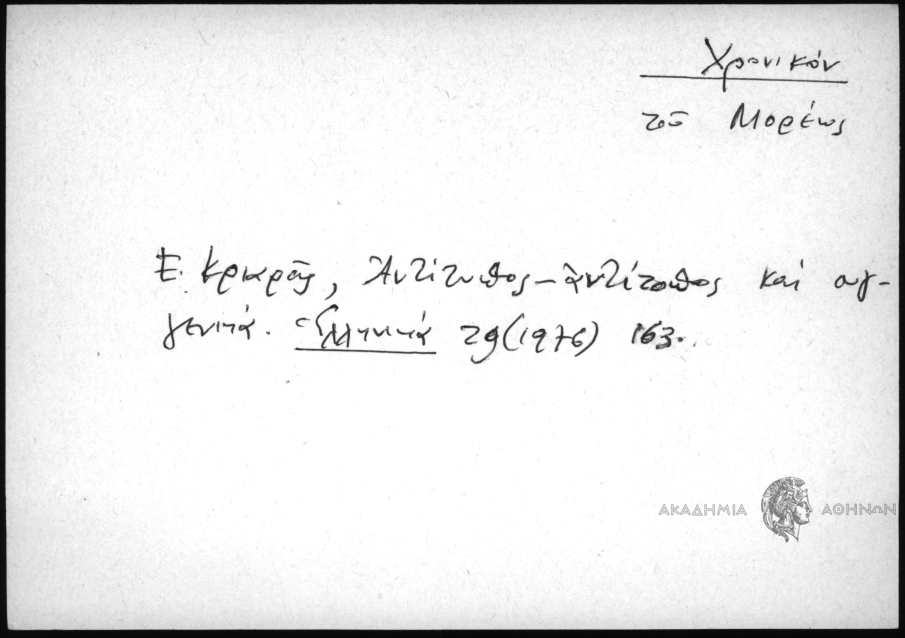 Χρονικόν
τοῦ Μορέως
Ε. Κριαρᾶς, Ἀντίτυπος – ἀντίτοπος καὶ συγ-
γενικά. Ἑλληνικά 29 (1976) 163.
ΑΚΑΔΗΜΙΑ ΑΘΗΝΩΝ